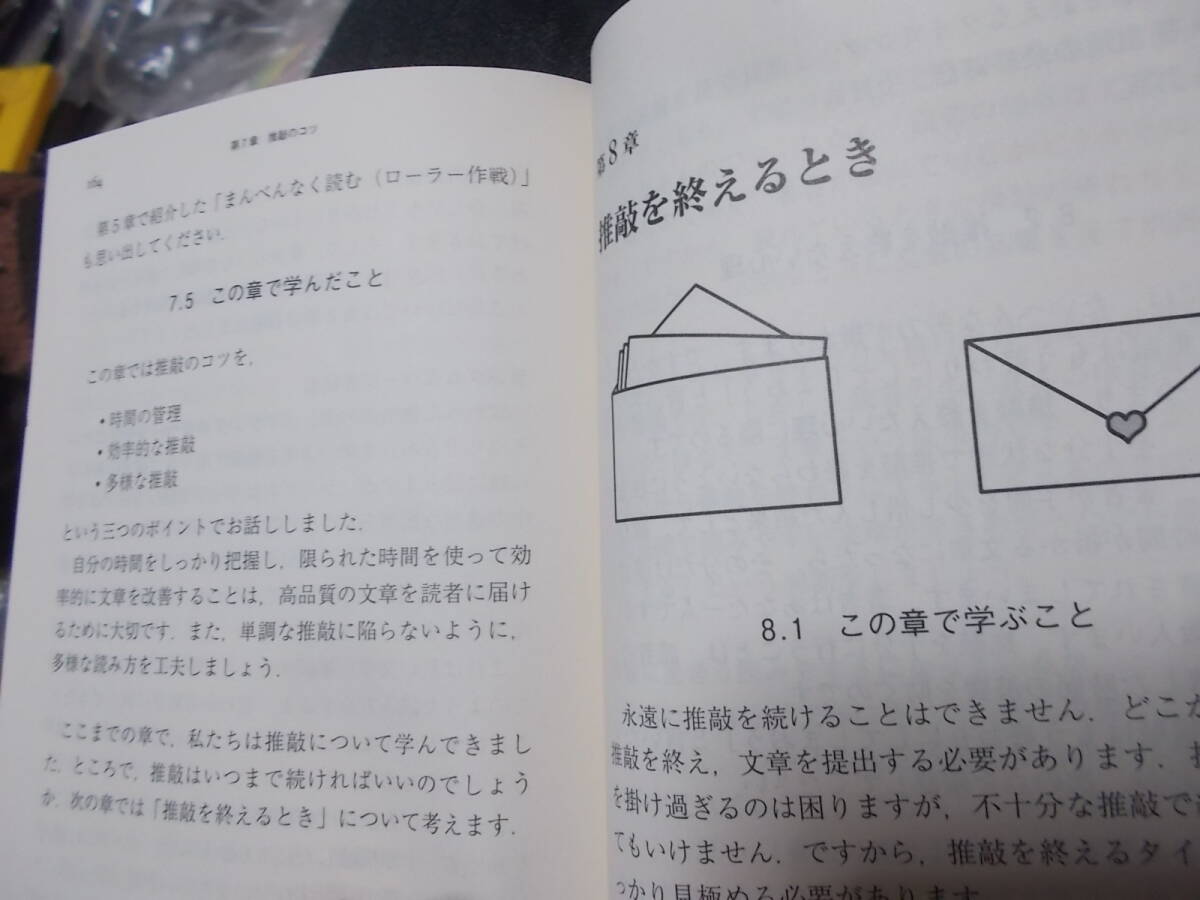 第7章 推敲のコツ
164
第5章で紹介した「まんべんなく読む（ローラー作戦）」
も思い出してください．
7.5 この章で学んだこと
この章では推敲のコツを，
・時間の管理
・効率的な推敲
・多様な推敲
という三つのポイントでお話ししました．
自分の時間をしっかり把握し，限られた時間を使って効
率的に文章を改善することは，高品質の文章を読者に届け
るために大切です．また，単調な推敲に陥らないように，
多様な読み方を工夫しましょう．
ここまでの章で，私たちは推敲について学んできまし
た．ところで，推敲はいつまで続ければいいのでしょう
か．次の章では「推敲を終えるとき」について考えます．
第8章
推敲を終えるとき
8.1 この章で学ぶこと
永遠に推敲を続けることはできません．どこか
推敲を終え，文章を提出する必要があります．
を掛け過ぎるのは困りますが，不十分な推敲で
てもいけません．ですから，推敲を終えるタイ
っかり見極める必要があります